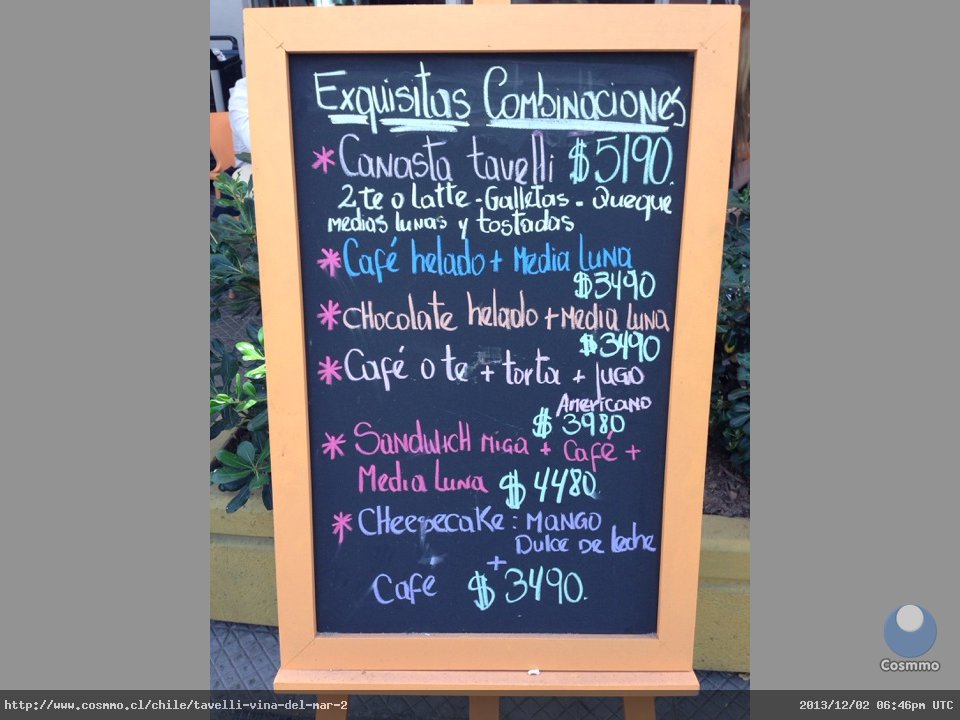 Exquisitas Combinaciones
* Canasta tavelli $5190.
2 te o latte - Galletas - Queque
medias lunas y tostadas
* Café helado + Media luna
$3490
* Chocolate helado + Media luna
$3490
* Café o te + torta + jugo
Americano
$ 3980
* Sandwich miga + Café +
Media luna $ 4480
* Cheesecake: Mango
Dulce de leche
+
Cafe $ 3490.
Cosmmo
http://www.cosmmo.cl/chile/tavelli-vina-del-mar-2
2013/12/02 06:46pm UTC